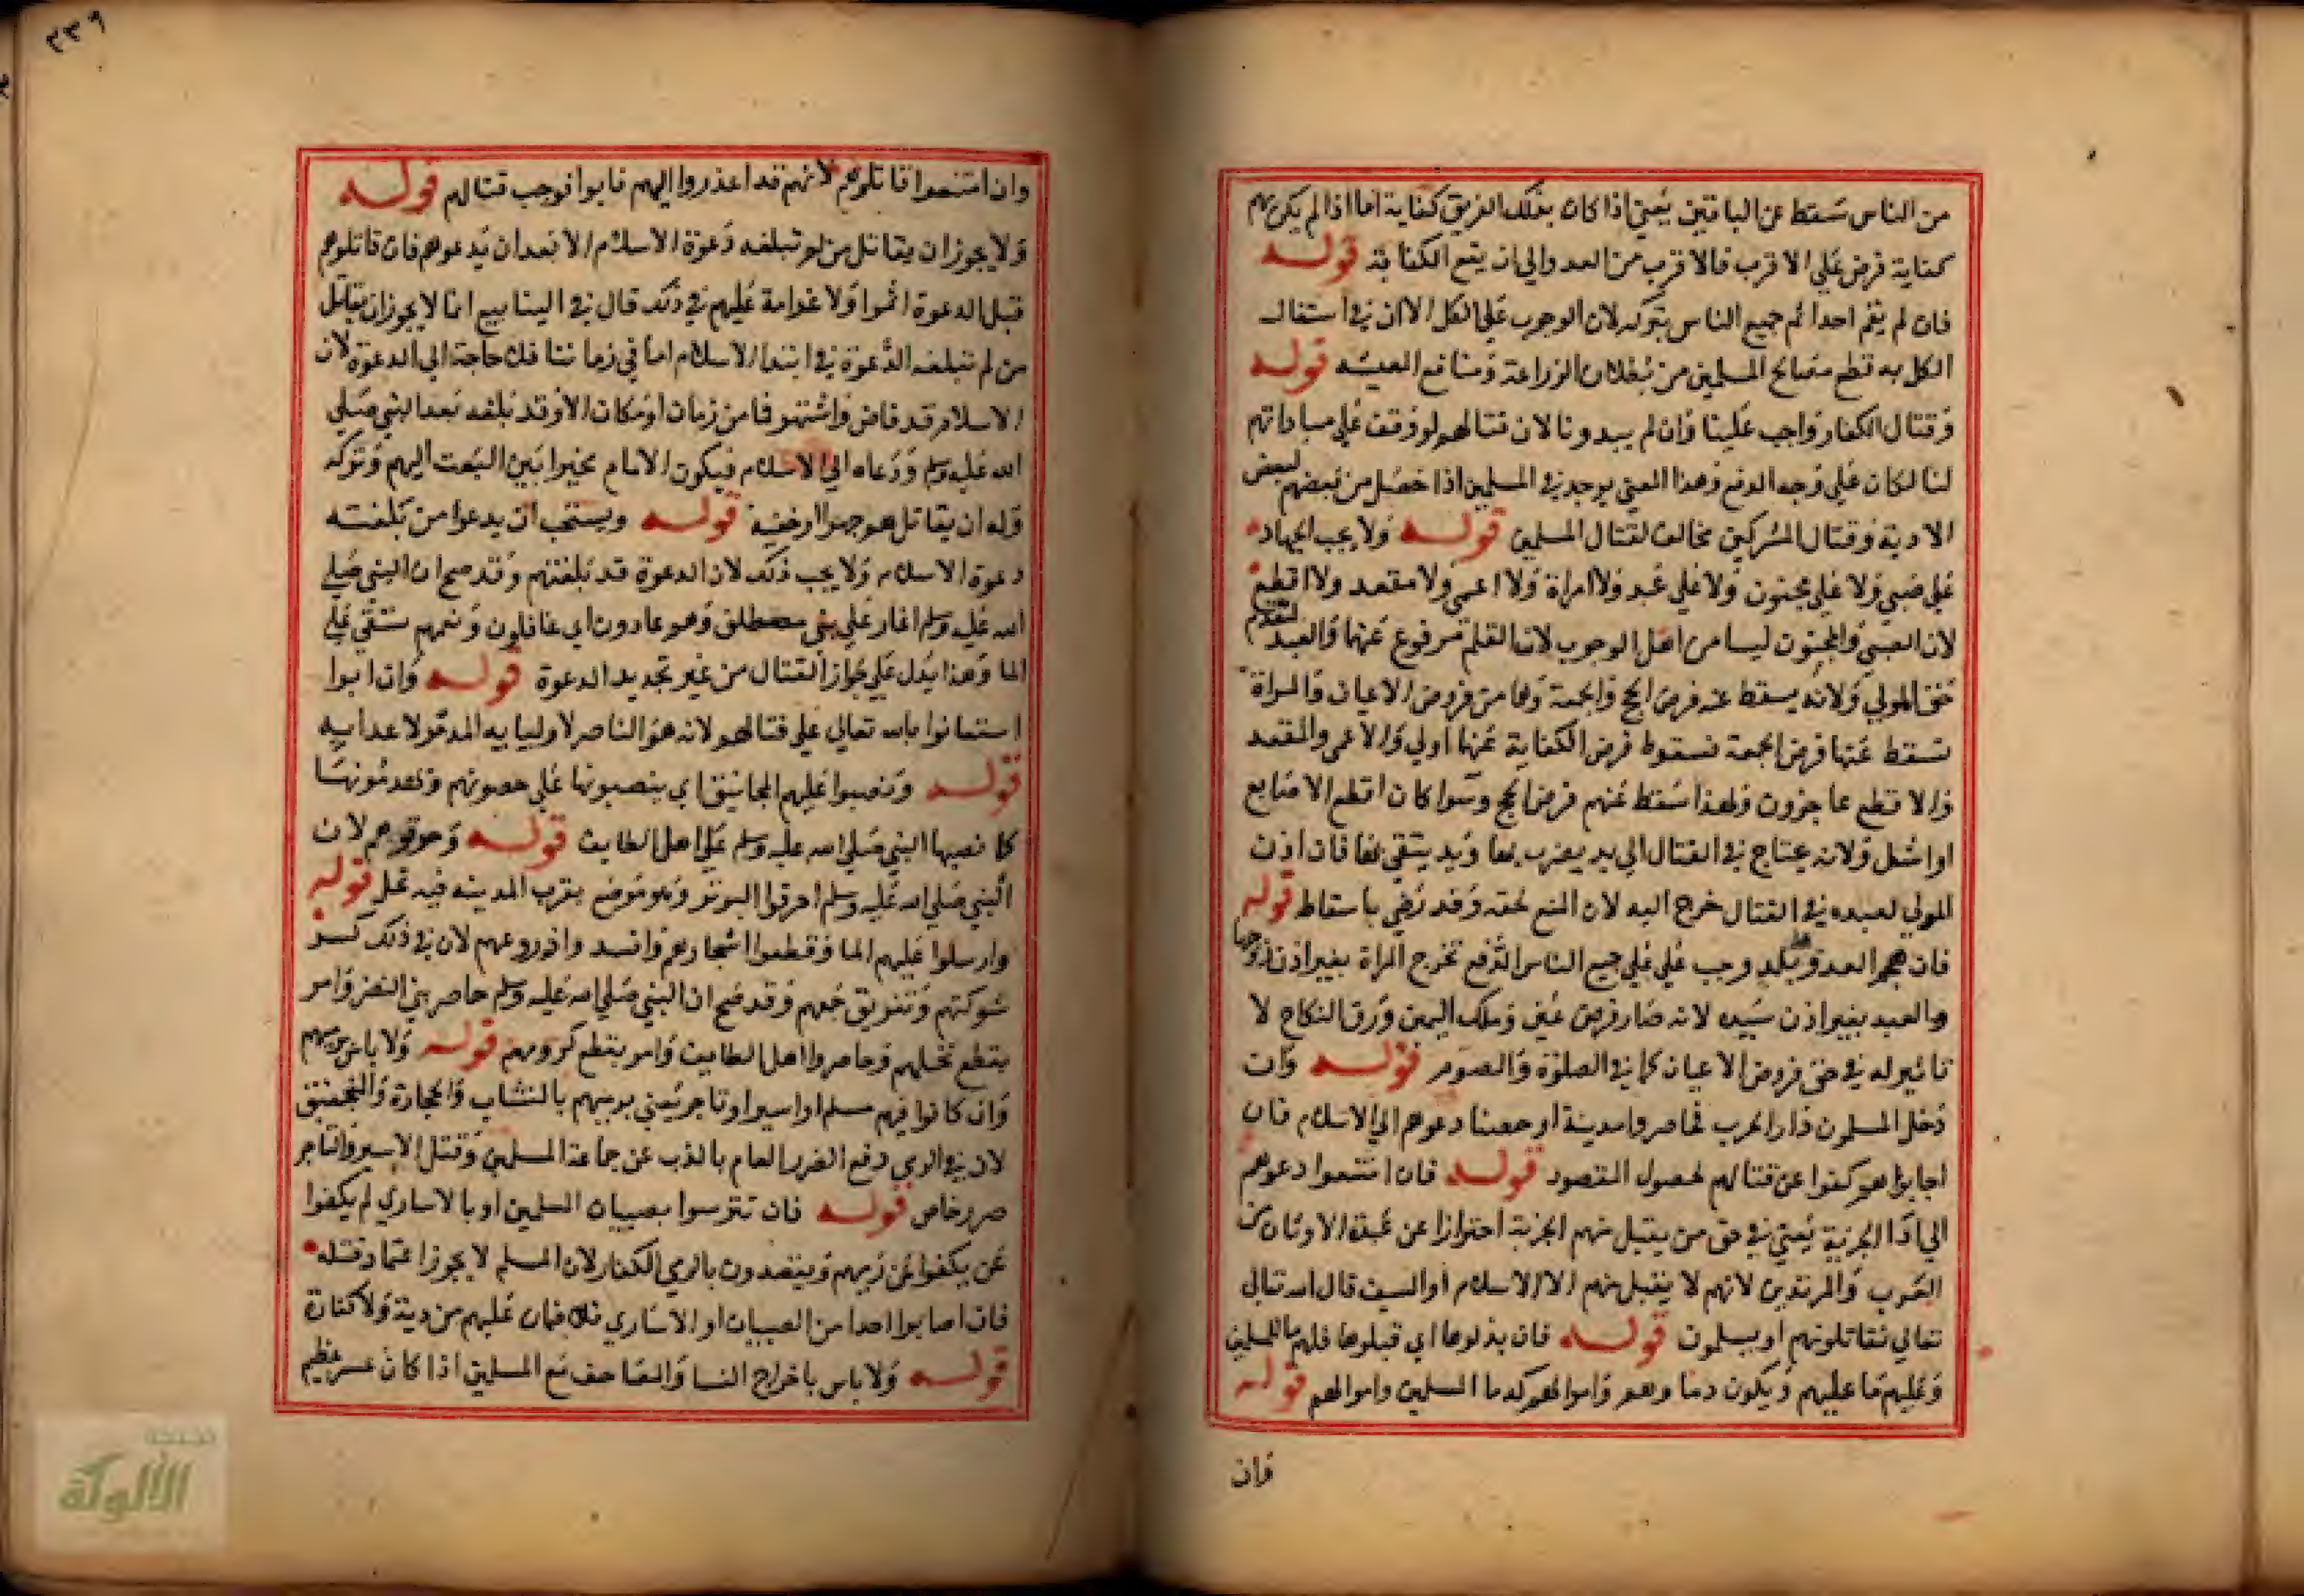 من الناس سقط عن الباقين يعني اذا كان بذلك الفريق كفاية اما اذا لم يكن بهم
كفاية فرض علي الاقرب فالاقرب من العدو الي ان يقع الكفاية قوله
فان لم يقم احد اثم جميع الناس بتركه لان الوجوب علي الكل الا ان في اشتغال
الكل به قطع مصالح المسلمين من بطلان الزراعة ومنافع المعيشه قوله
وقتال الكفار واجب علينا وان لم يبدونا لان قتالهم لو وقف علي مباداتهم
لنا لكان علي وجه الدفع وهذا المعني يوجد في المسلمين اذا حصل من بعضهم لبعض
الاذية وقتال المشركين مخالف لقتال المسلمين قوله ولا يجب الجهاد
علي صبي ولا علي مجنون ولا علي عبد ولا امراة ولا اعمي ولا مقعد ولا اقطع
لان الصبي والمجنون ليسا من اهل الوجوب لان القلم مرفوع عنهما والعبد لتقدم
حق المولي ولانه يسقط عنه فرض الحج والجمعة وهما من فروض الاعيان والمراة
تسقط عنها فرض الجمعة فسقوط فرض الكفاية عنها اولي والاعمي والمقعد
والاقطع عاجزون ولهذا سقط عنهم فرض الحج وسوا كان اقطع الاصابع
او اشل ولانه يحتاج في القتال الي يد يضرب بها ويد يتقي بها فان اذن
المولي لعبده في القتال خرج اليه لان المنع لحقه وقد رضي باسقاط قوله
فان هجم العدو علي بلد وجب علي علي جميع الناس الدفع تخرج المراة بغير اذن زوجها
والعبد بغير اذن سيده لانه صار فرض عين وملك اليمين ورق النكاح لا
تاثير له في حق فروض الاعيان كما في الصلوة والصوم قوله وان
دخل المسلمون دار الحرب فحاصروا مدينة او حصنا دعوهم الي الاسلام فان
اجابوهم كفوا عن قتالهم لحصول المقصود قوله فان امتنعوا دعوهم
الي اداء الجزية يعني في حق من يقبل منهم الجزية احترازا عن عبدة الاوثان من
العرب والمرتدين لانهم لا يقبل منهم الا الاسلام او السيف قال الله تعالي
تعالي تقاتلونهم او يسلمون قوله فان بذلوها اي قبلوها فلهم ما للمسلمين
وعليهم ما عليهم ويكون دماوهم واموالهم كدما المسلمين واموالهم قوله
فان
٢٣٩
وان امتنعوا قاتلوهم لانهم قد اعذروا اليهم فابوا فوجب قتالهم قوله
ولا يجوز ان يقاتل من لم تبلغه دعوة الاسلام الا بعد ان يدعوهم فان قاتلوهم
قبل الدعوة اثموا ولا غرامة عليهم في ذلك قال في الينابيع انما لا يجوز ان يقاتل
من لم تبلغه الدعوة في ابتدا الاسلام اما في زماننا فلا حاجة الي الدعوة لان
الاسلام قد فاض واشتهر فما من زمان او مكان الا وقد بلغه بعد النبي صلي
الله عليه وسلم ودعاه الي الاسلام فيكون الامام مخيرا بين البعث اليهم وتركه
وله ان يقاتلهم جهرا او خفية قوله ويستحب ان يدعوا من بلغته
دعوة الاسلام ولا يجب ذلك لان الدعوة قد بلغتهم وقد صح ان النبي صلي
الله عليه وسلم اغار علي بني مصطلق وهم عادون اي غافلون ونعمهم تسقي علي
الما وهذا يدل علي جواز القتال من غير تجديد الدعوة قوله وان ابوا
استعانوا بالله تعالي علي قتالهم لانه هو الناصر لاوليايه المدمر لاعدايه
قوله ونصبوا عليهم المجانيق اي ينصبونها علي حصونهم ويهدمونها
كما نصبها النبي صلي الله عليه وسلم علي اهل الطايف قوله وحرقوهم لان
النبي صلي الله عليه وسلم احرقوا البويرة وهو موضع بقرب المدينه فيه نخل قوله
وارسلوا عليهم الما وقطعوا اشجارهم وافسدوا زروعهم لان في ذلك كسر
شوكتهم وتفريق جمعهم وقد صح ان النبي صلي الله عليه وسلم حاصر بني النضر وامر
بقطع نخلهم وحاصروا اهل الطايف وامر بقطع كرومهم قوله ولا باس برميهم
وان كانوا فيهم مسلم او اسير او تاجر يعني برميهم بالنشاب والحجارة والمنجنيق
لان في الرمي دفع الضرر العام بالذب عن جماعة المسلمين وقتل الاسير والتاجر
ضرر خاص قوله فان تترسوا بصبيان المسلمين او بالاساري لم يكفوا
عن يكفوا عن رميهم ويقصدون بالرمي الكفار لان المسلم لا يجوز اعتماد قتله
فان اصابوا احدا من الصبيان او الاساري فلا ضمان عليهم من دية ولا كفارة
قوله ولا باس باخراج النسا والمصاحف مع المسلمين اذا كان عسر عظيم
الألوكة